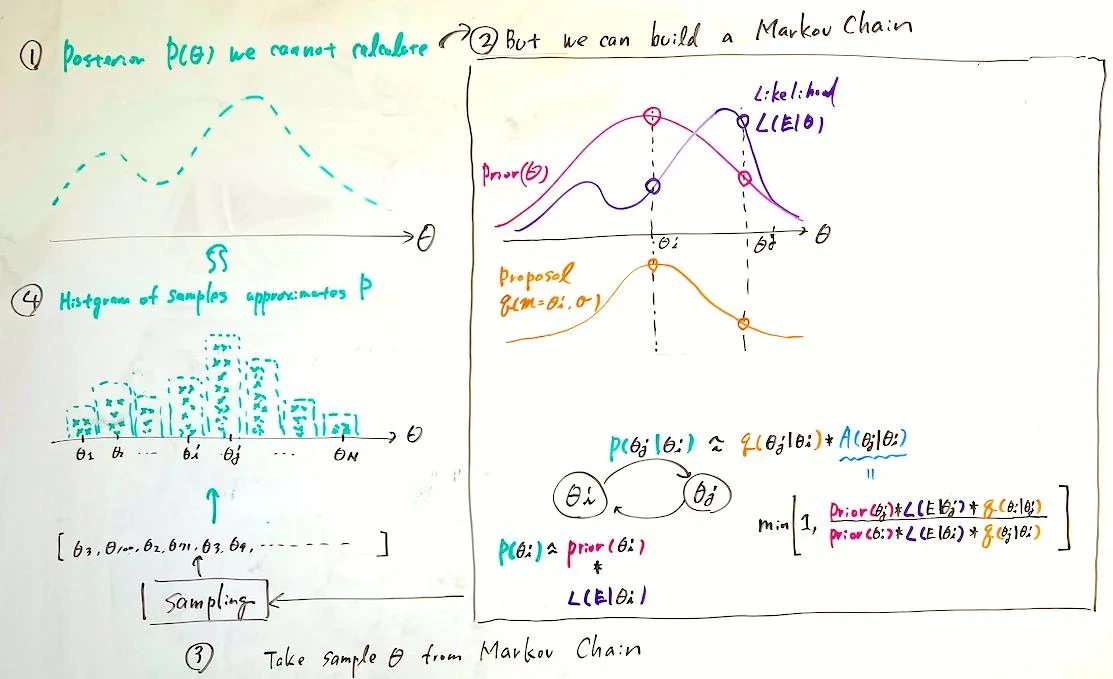 ① Posterior P(θ) we cannot calculate
② But we can build a Markov Chain
Likelihood
L(E|θ)
Prior(θ)
θ
θi
θj
θ
Proposal
q(m=θi,σ)
④ Histgram of samples approximates P
θ
θ1
...
θi
θj
...
θN
P(θj|θi) ≈ q(θj|θi)*A(θj|θi)
=
θi
θj
min[1, Prior(θj)*L(E|θj)*q(θi|θj)
prior(θi)*L(E|θi)*q(θj|θi)]
P(θi) ≈ prior(θi)
*
L(E|θi)
Sampling
③ Take sample θ from Markov Chain